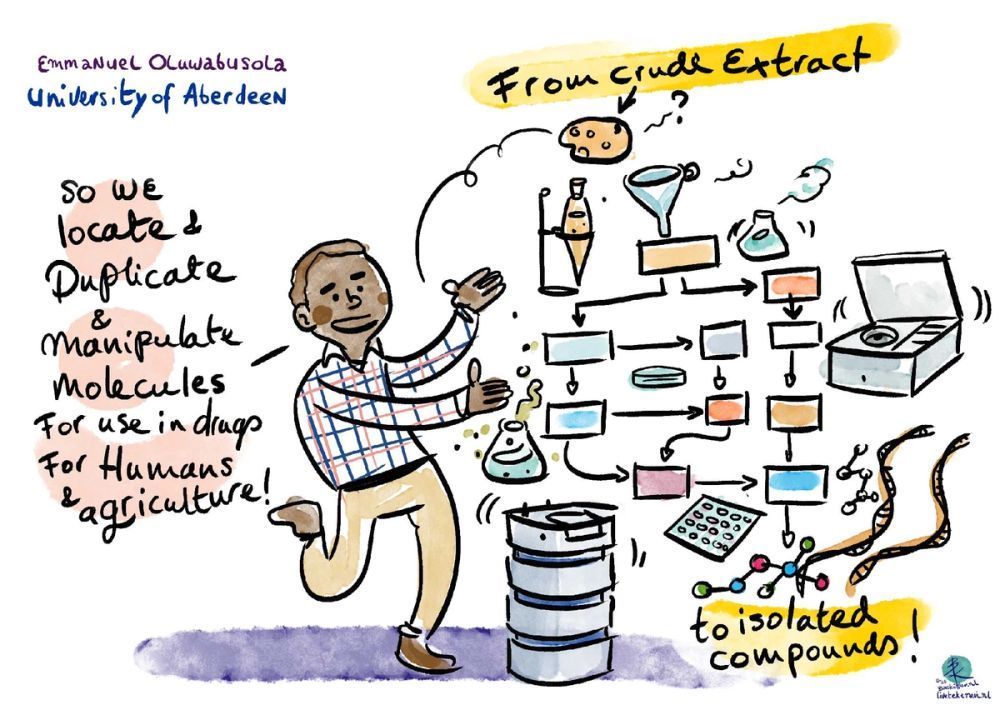 Emmanuel Oluwabusola
University of Aberdeen
From crude Extract
?
So we
locate &
Duplicate
&
Manipulate
Molecules
For use in drugs
For Humans
& agriculture!
to isolated
compounds!
livetekenen.nl